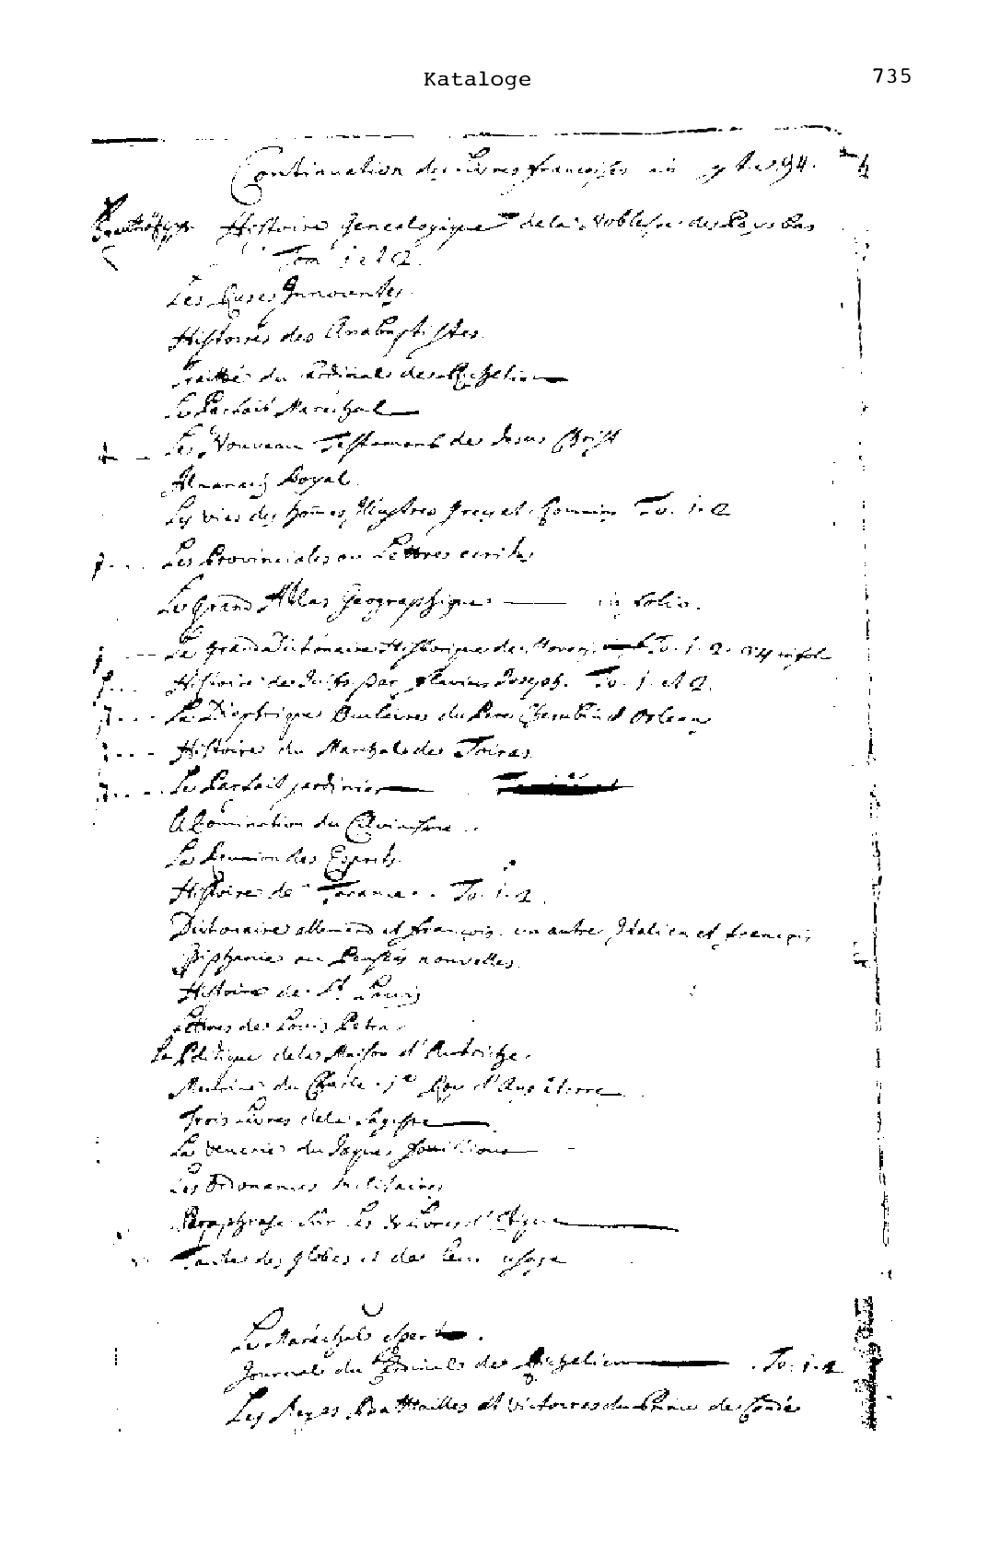 Kataloge 735
Continuation des Livres françoises
Histoire Genealogique de la Noblesse des Pays bas
Tom 1 et 2.
Les Ruses Innocentes.
Histoires des Anabaptistes.
Traitté du Cardinal de Richelieu
Le Parfait Mareschal
Le Nouveau Testament de Jesus Christ
Almanach Royal.
Les vies des hommes Illustres To. 1. 2
Les Provinciales ou Lettres ecrites
Le Grand Atlas Geographique in folio.
Le grand Dictionaire Historique de Morery To. 1. 2.
Histoire des Juifs par Flavius Joseph. To. 1. et 2.
La Dioptrique Oculaire du Pere Cherubin d'Orleans
Histoire du Marechal de Toiras
Le Parfait jardinier
Abomination du Calvinisme
La Reunion des Esprits.
Histoire de To. 1. 2.
Dictionaire allemand et françois. un autre Italien et françois
Epiphanies ou Pensées nouvelles.
Histoire de St. Louis
Lettres de Louis
La Politique de la Maison d'Autriche.
Histoire du Charle 1er Roy d'Angleterre
Trois Livres de la Sagesse
La Venerie du Jaques Fouilloux
Les Ordonances Militaires
Paraphrase sur les
Traité des globes et de leur usage
Le Maréchal expert.
Journal du Cardinal de Richelieu To. 1. 2
Les Sieges Battailles et Victoires du Prince de Condé